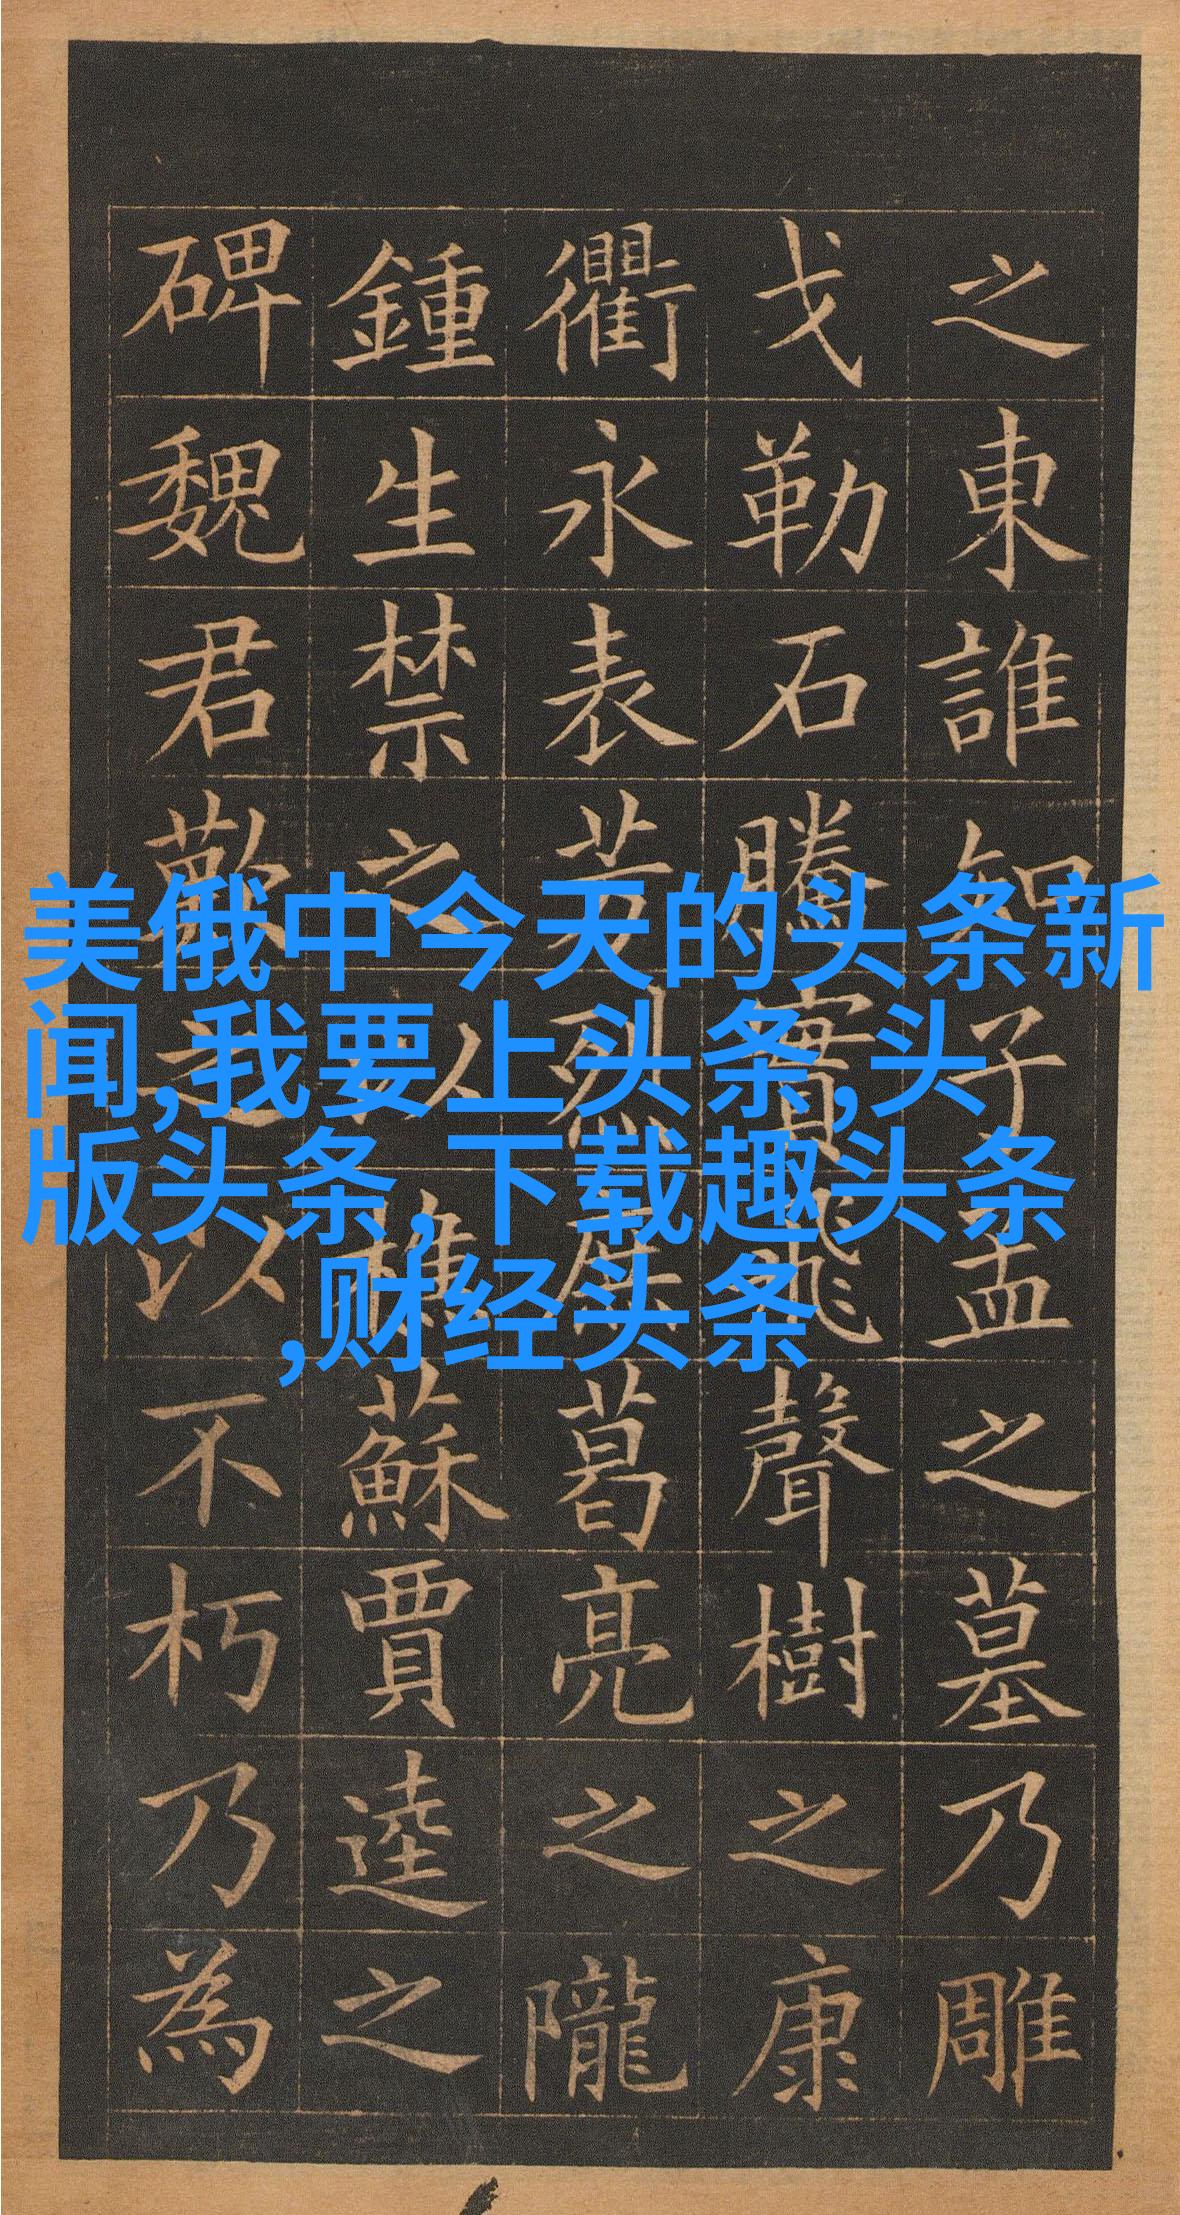 之東誰知子孟之墓乃雕
戈勒石騰實飛聲樹之康
衢永表芳烈庶葛亮之隴
鍾生禁之以樵蘇賈逵之
碑魏君歎之以不朽乃為
美俄中今天的头条新
闻,我要上头条,头
版头条,下载趣头条
,财经头条